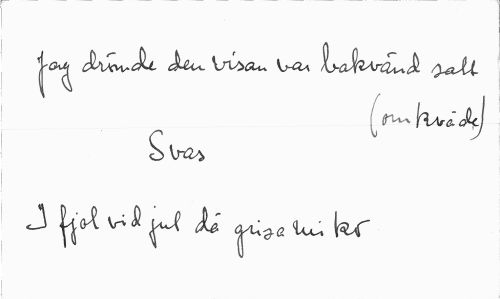 Jag drömde den visan var bakvänd salt
(omkväde)
Svas
I fjol vid jul då grisa mi ko